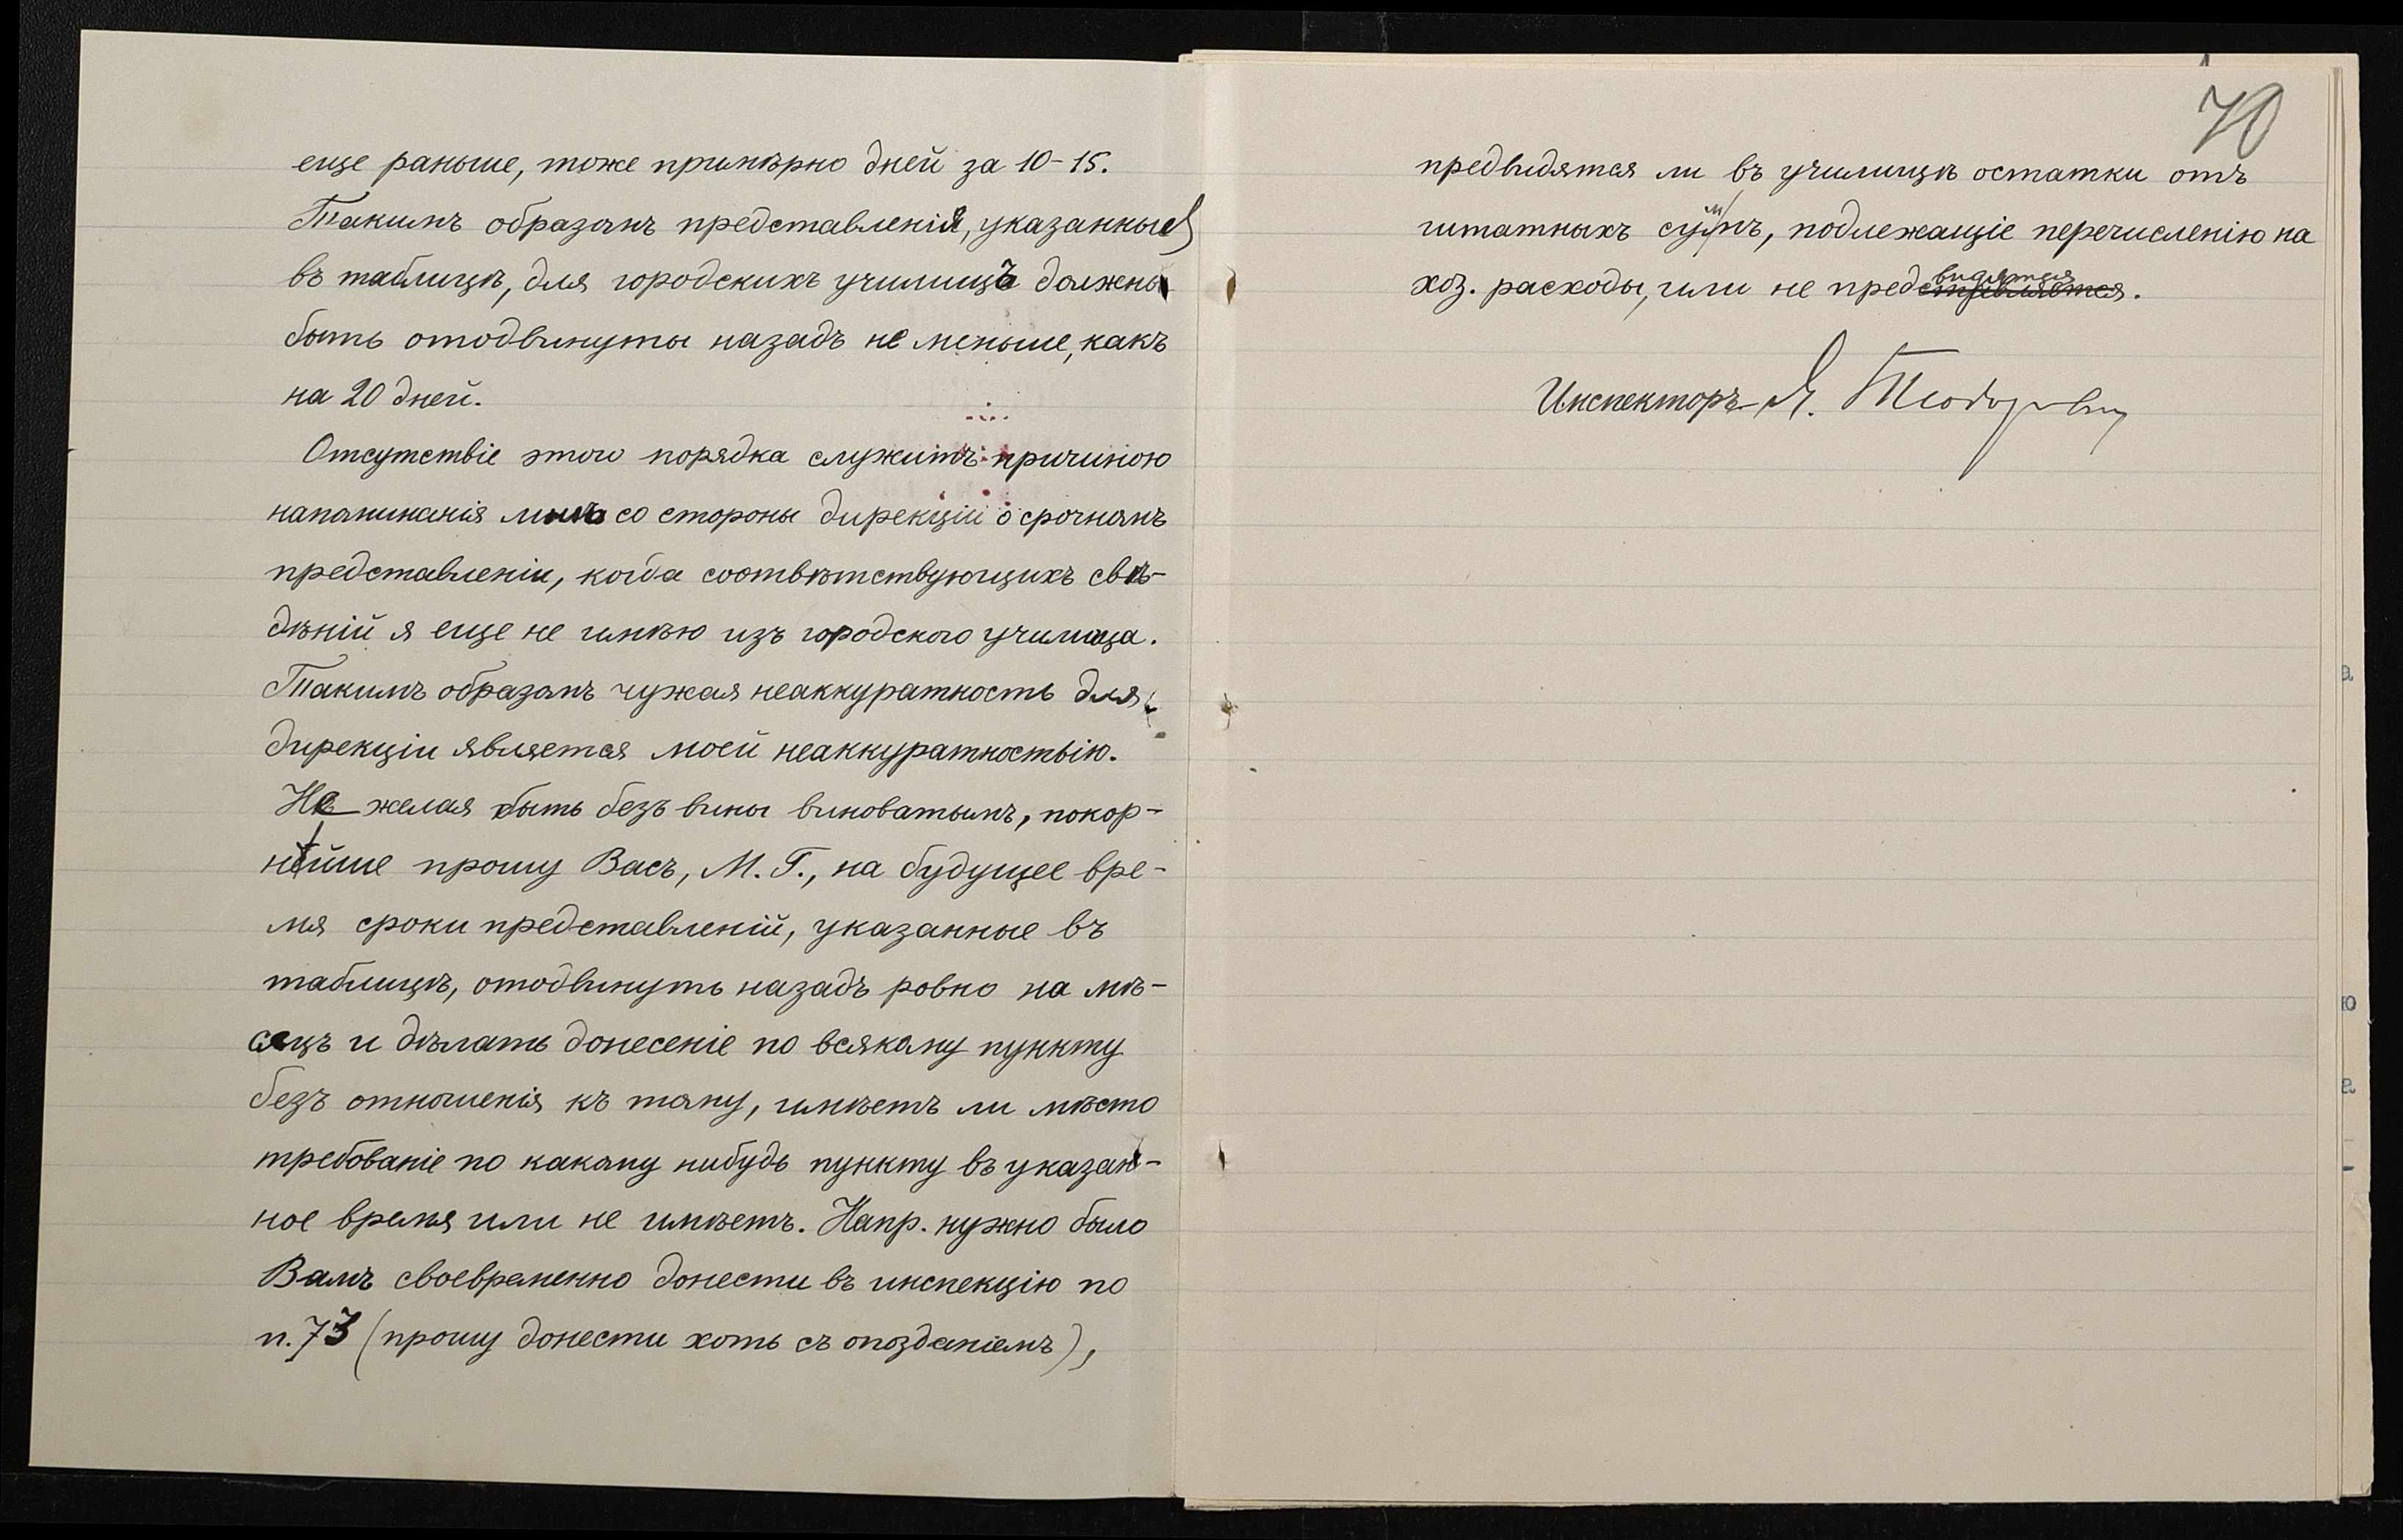 еще раньше, тоже примѣрно дней за 10-15.
Такимъ образомъ представленія, указанные
въ таблицѣ, для городскихъ училищъ должны
быть отодвинуты назадъ не меньше, какъ
на 20 дней.
Отсутствіе этого порядка служитъ причиною
напоминанія мнѣ со стороны дирекціи о срочномъ
представленіи, когда соотвѣтствующихъ свѣ-
дѣній я еще не имѣю изъ городского училища.
Такимъ образомъ чужая неаккуратность для
дирекціи является моей неаккуратностью.
Не желая быть безъ вины виноватымъ, покор-
нѣйше прошу Васъ, М. Г., на будущее вре-
мя сроки представленій, указанные въ
таблицѣ, отодвинуть назадъ ровно на мѣ-
сяцъ и дѣлать донесеніе по всякому пункту
безъ отношенія къ тому, имѣетъ ли мѣсто
требованіе по какому нибудь пункту въ указан-
ное время или не имѣетъ. Напр. нужно было
Вамъ своевременно донести въ инспекцію по
п. 73 (прошу донести хоть съ опозданіемъ),
70
предвидятся ли въ училищѣ остатки отъ
штатныхъ суммъ, подлежащіе перечисленію на
хоз. расходы, или не предвидятся.
Инспекторъ